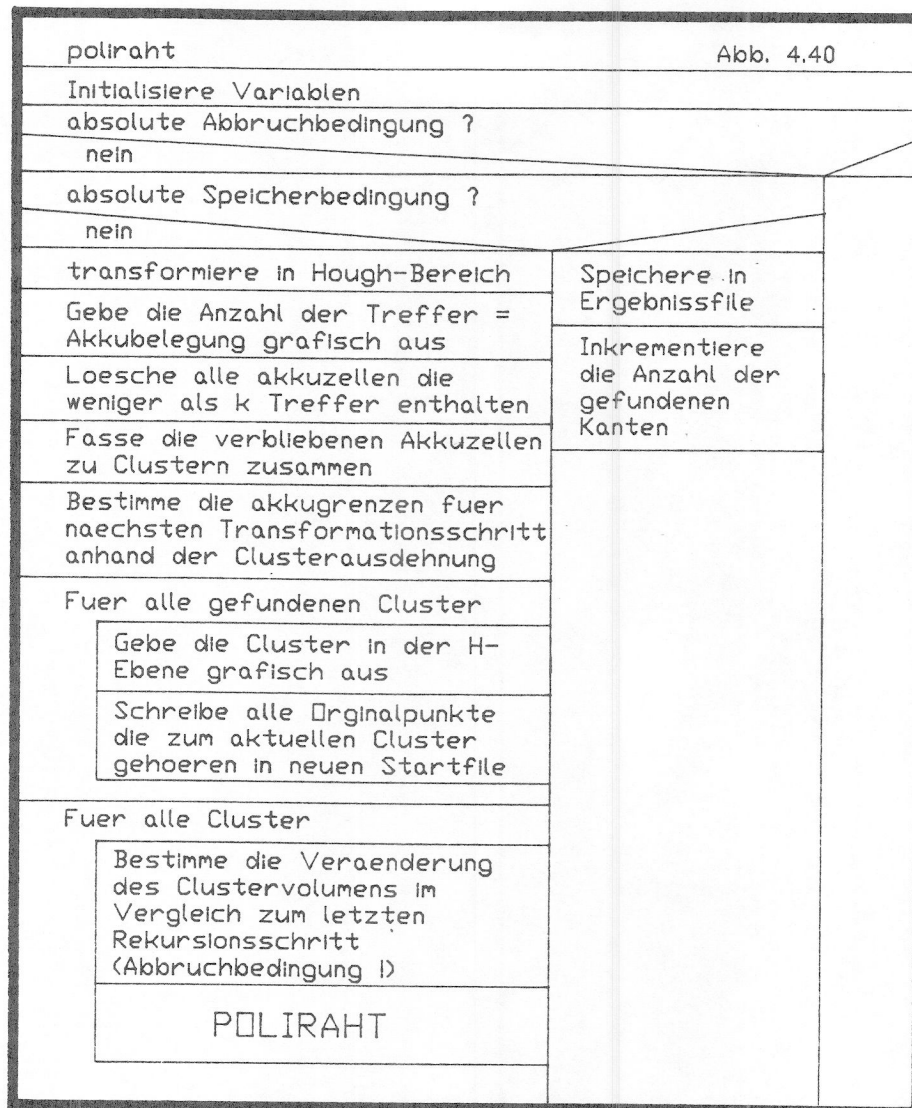 poliraht Abb. 4.40
Initialisiere Variablen
absolute Abbruchbedingung ?
nein
absolute Speicherbedingung ?
nein
transformiere in Hough-Bereich
Gebe die Anzahl der Treffer =
Akkubelegung grafisch aus
Loesche alle akkuzellen die
weniger als k Treffer enthalten
Fasse die verbliebenen Akkuzellen
zu Clustern zusammen
Bestimme die akkugrenzen fuer
naechsten Transformationsschritt
anhand der Clusterausdehnung
Fuer alle gefundenen Cluster
Gebe die Cluster in der H-
Ebene grafisch aus
Schreibe alle Orginalpunkte
die zum aktuellen Cluster
gehoeren in neuen Startfile
Fuer alle Cluster
Bestimme die Veraenderung
des Clustervolumens im
Vergleich zum letzten
Rekursionsschritt
(Abbruchbedingung I)
POLIRAHT
Speichere in
Ergebnissfile
Inkrementiere
die Anzahl der
gefundenen
Kanten